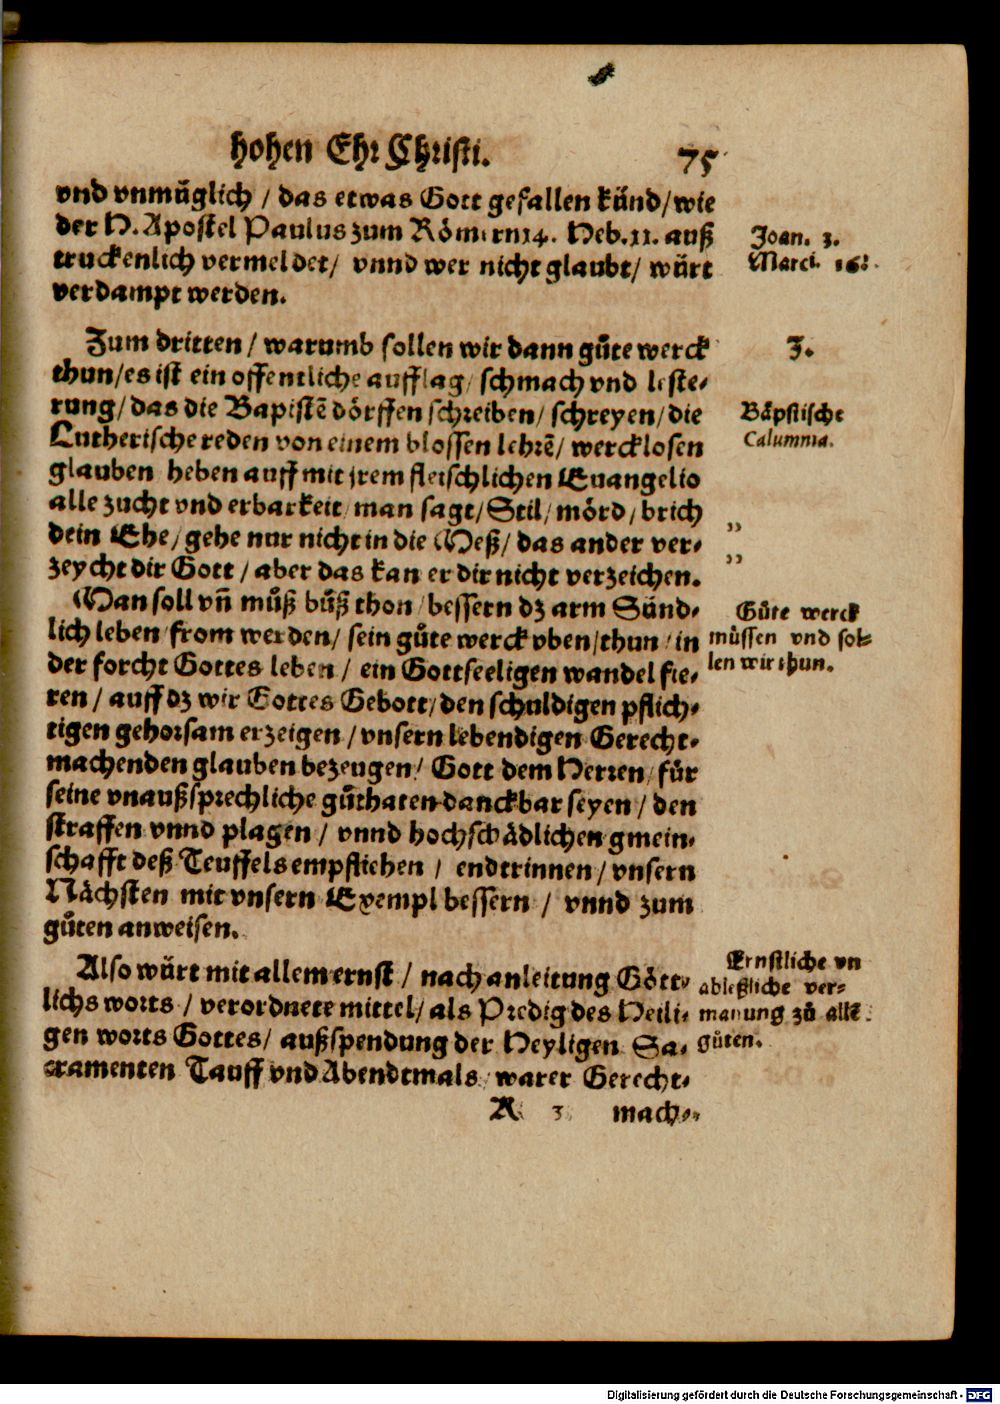 hohen Ehr Christi.
75
vnd vnmüglich / das etwas Gott gefallen künd/wie
der H. Apostel Paulus zum Römern 14. Heb. 11. auß
truckenlich vermeldet/ vnnd wer nicht glaubt/ würt
verdampt werden.
Joan. 3.
Marci. 16.
Zum dritten / warumb sollen wir dann gůte werck
thun/es ist ein offentliche aufflag/ schmach vnd leste-
rung/das die Bapistẽ dörffen schreiben/ schreyen/die
Lutherische reden von einem blossen lehrẽ/ wercklosen
glauben heben auff mit jrem fleischlichen Euangelio
alle zucht vnd erbarkeit/ man sagt/Stil/ mörd/ brich
dein Ehe/ gehe nur nicht in die Meß/ das ander ver-
zeycht dir Gott / aber das kan er dir nicht verzeichen.
3.
Bäpstische
Calumnia.
„
„
Man soll vñ můß bůß thon/ bessern dz arm Sünd-
lich leben/ from werden/ sein gůte werck vben/thun/ in
der forcht Gottes leben / ein Gottseeligen wandel fie-
ren / auff dz wir Gottes Gebott/ den schuldigen pflich-
tigen gehorsam erzeigen / vnsern lebendigen Gerecht-
machenden glauben bezeugen/ Gott dem Herren/ für
seine vnaußsprechliche gůthaten danckbar seyen / den
straffen vnnd plagen / vnnd hochschädlichen gmein-
schafft deß Teuffels empfliehen / endtrinnen / vnsern
Nächsten mit vnsern Exempl bessern / vnnd zum
gůten anweisen.
Gůte werck
müssen vnd sol-
len wir thun.
Also würt mit allem ernst / nach anleitung Gött-
lichs worts / verordnete mittel/ als Predig des Heili-
gen worts Gottes/ außspendung der Heyligen Sa-
cramenten Tauff vnd Abendtmals/ warer Gerecht-
Ernstliche vn
ableßliche ver-
manung zů allẽ
gůten.
K 3 mach-
Digitalisierung gefördert durch die Deutsche Forschungsgemeinschaft - DFG